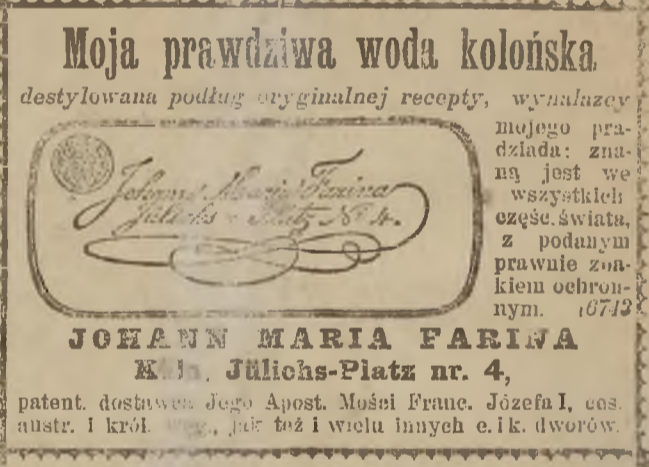 Moja prawdziwa woda kolońska
destylowana podług oryginalnej recepty, wynalazcy
mojego pra-
dziada: zna-
ną jest we
wszystkich
częśc. świata,
z podanym
prawnie zna-
kiem ochron-
nym. 6713
Johann Maria Farina
Jülichs Platz No 4.
JOHANN MARIA FARINA
Köln, Jülichs-Platz nr. 4,
patent. dostawca Jego Apost. Mości Franc. Józefa I, ces.
austr. i król. węg., jak też i wielu innych c. i k. dworów.